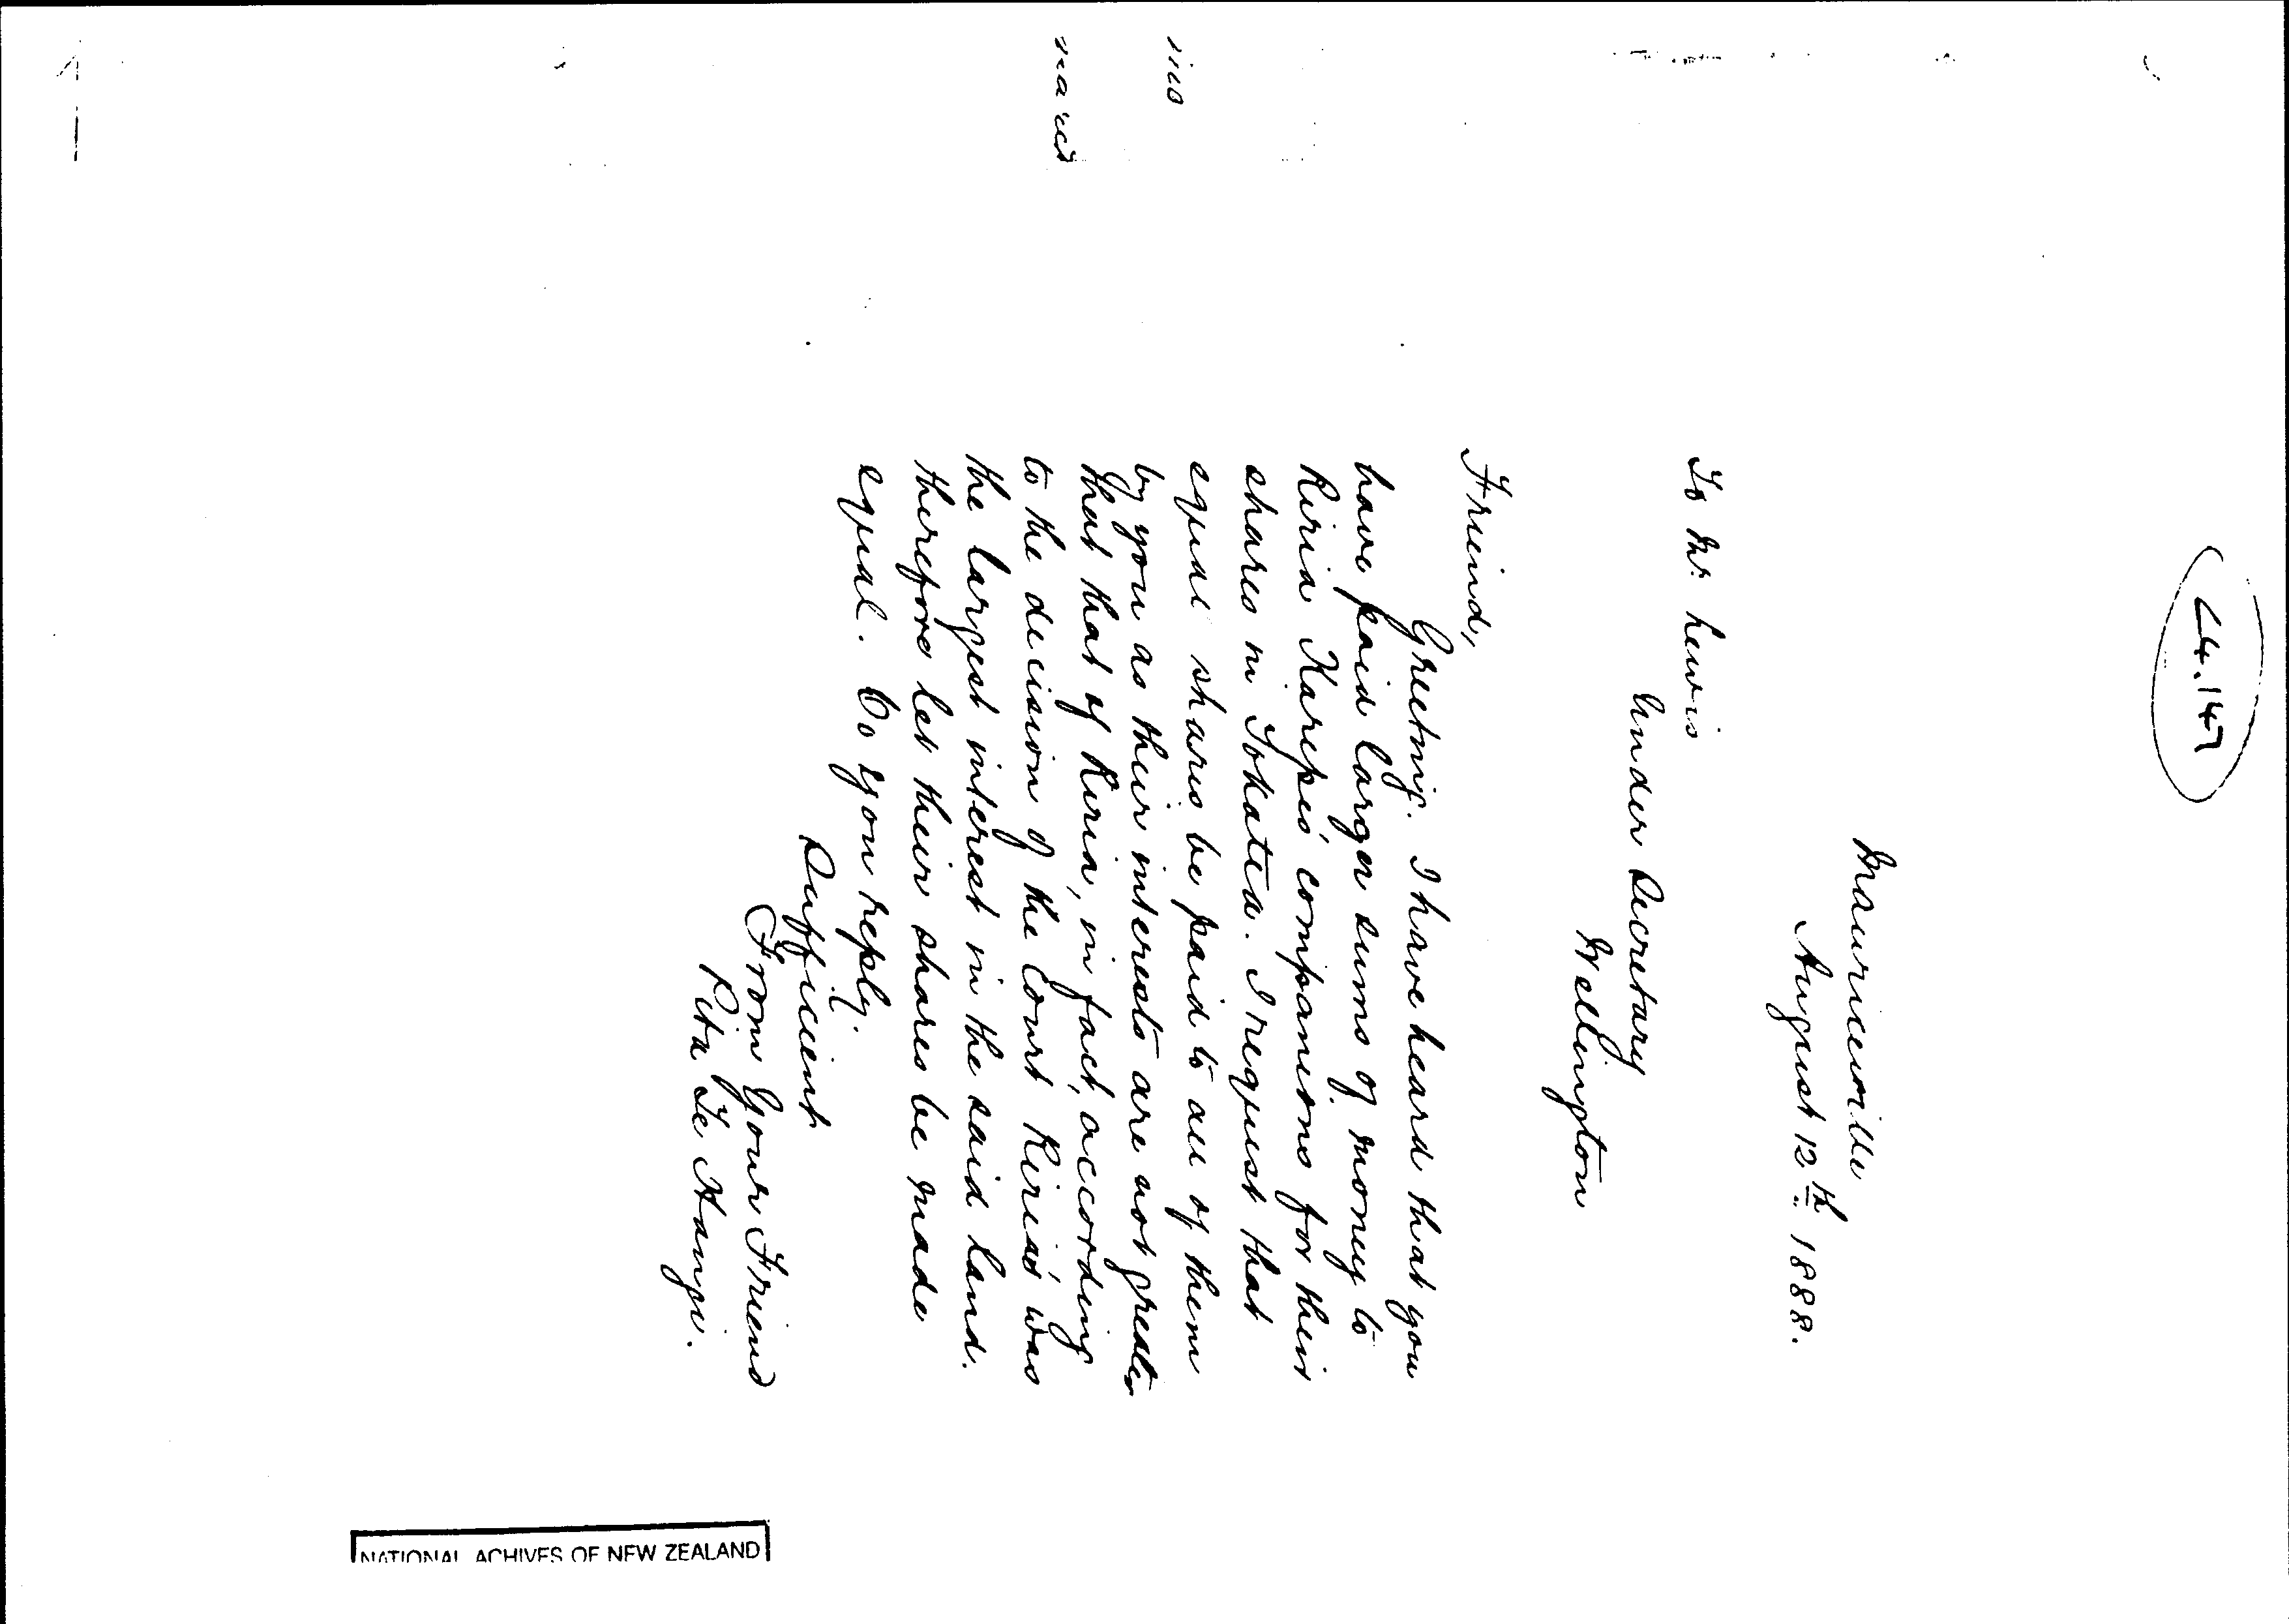 24.147
Mauriceville
August 12th 1888.
To Mr. Lewis
Under Secretary
Wellington
Friend,
Greeting. I have heard that you
have paid larger sums of money to
Riria Karepis' companions for their
shares in Tokatea. I request that
equal shares be paid to all of them
by you as their interests are not greater
that that of Riria, in fact, according
to the decision of the Court Riria's was
the largest interest in the said land.
therefore let their shares be made
equal. Do you reply.
Sufficient
From Your Friend
Pita Te Hangi.
NATIONAL ACHIVES OF NEW ZEALAND